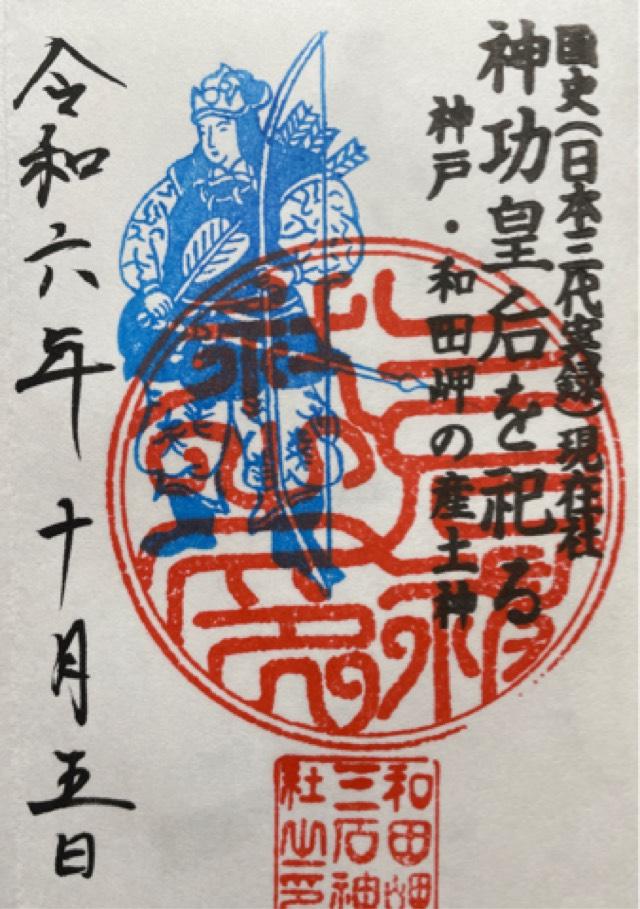 国史(日本三代実録)現在社
神功皇后を祀る
神戸・和田岬の産土神
令和六年 十月五日
和田岬
三石神
社之印